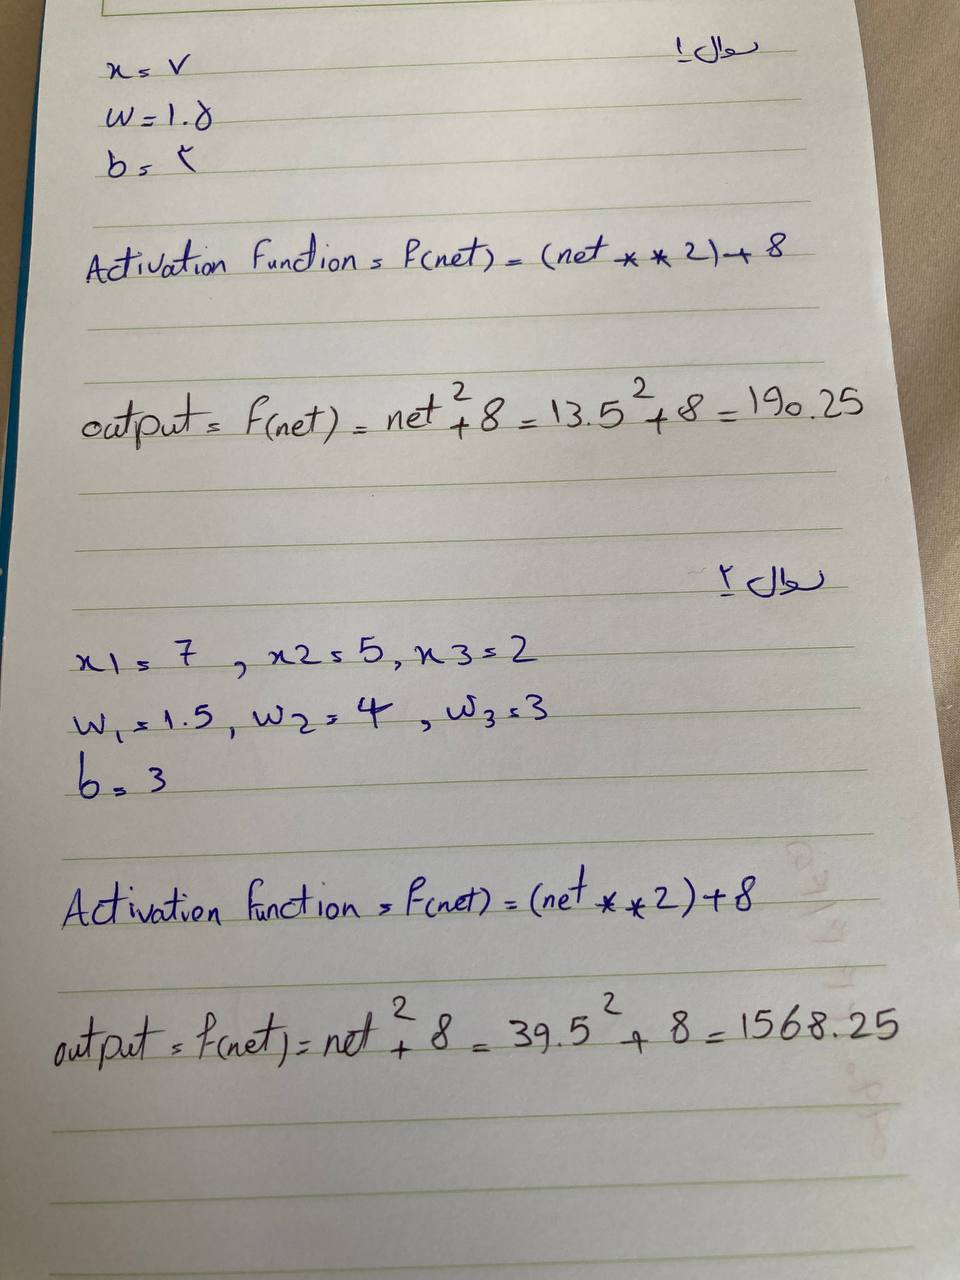 سوال ۱
x = ۷
w = 1.۵
b = ۳
Activation Function = f(net) = (net ** 2) + 8
output = f(net) = net² + 8 = 13.5² + 8 = 190.25
سوال ۲
x1 = 7 , x2 = 5, x3 = 2
w₁ = 1.5, w₂ = 4 , w₃ = 3
b = 3
Activation function = f(net) = (net ** 2) + 8
output = f(net) = net² + 8 = 39.5² + 8 = 1568.25